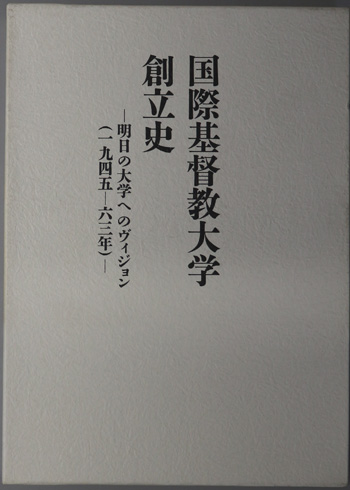 国際基督教大学
創立史
―明日の大学へのヴィジョン
(一九四五―六三年)―